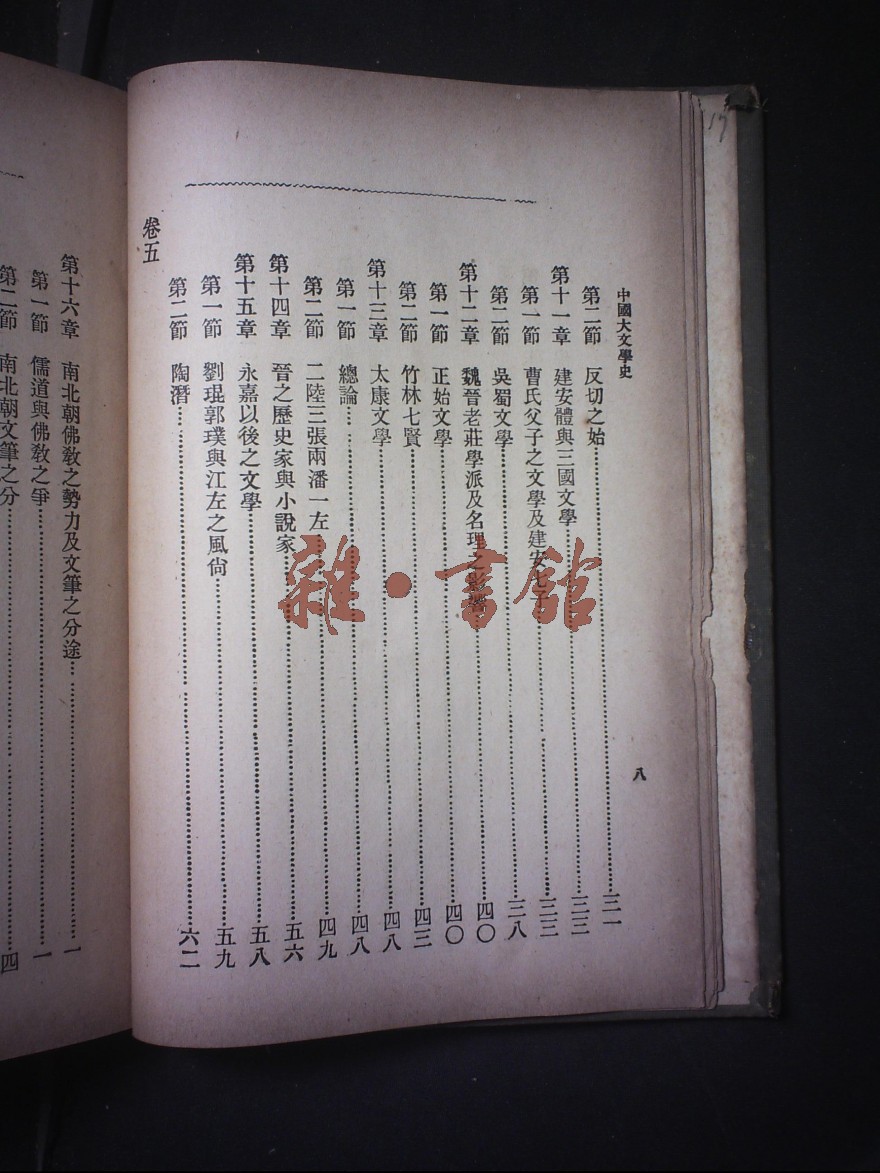 中國大文學史
八
第二節 反切之始 三一
第十一章 建安體與三國文學 三三
第一節 曹氏父子之文學及建安七子 三三
第二節 吳蜀文學 三八
第十二章 魏晉老莊學派及名理之影響 四〇
第一節 正始文學 四〇
第二節 竹林七賢 四三
第十三章 太康文學 四八
第一節 總論 四八
第二節 二陸三張兩潘一左 四九
第十四章 晉之歷史家與小說家 五六
第十五章 永嘉以後之文學 五八
第一節 劉琨郭璞與江左之風尙 五九
第二節 陶潛 六二
卷五
第十六章 南北朝佛敎之勢力及文筆之分途 一
第一節 儒道與佛敎之爭 一
第二節 南北朝文筆之分 四
雜·書館